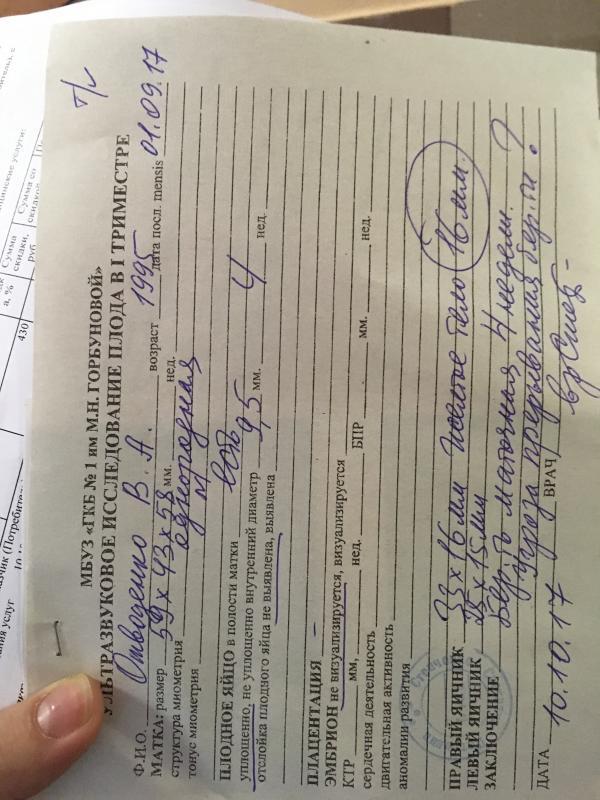 п/v
МБУЗ «ГКБ № 1 им М.Н. ГОРБУНОВОЙ»
УЛЬТРАЗВУКОВОЕ ИССЛЕДОВАНИЕ ПЛОДА В I ТРИМЕСТРЕ
Ф.И.О. В. А. возраст 1995 дата посл. mensis 01.09.17
МАТКА: размер 59 х 43 х 58 мм. нед.
структура миометрия однородная
тонус миометрия N
ПЛОДНОЕ ЯЙЦО в полости матки
уплощенно, не уплощенно внутренний диаметр 9,5 мм. 4 нед.
отслойка плодного яйца не выявлена, выявлена
ПЛАЦЕНТАЦИЯ –
ЭМБРИОН не визуализируется, визуализируется
КТР мм, нед. БПР мм. нед.
сердечная деятельность
двигательная активность
аномалии развития
ПРАВЫЙ ЯИЧНИК 33 х 16 мм желтое тело 16 мм.
ЛЕВЫЙ ЯИЧНИК х 15 мм
ЗАКЛЮЧЕНИЕ Бер-ть маточная 4 недели.
Угроза прерывания бер-ти ?
ДАТА 10.10.17 ВРАЧ
Сумма
скидки,
руб
Сумма со
а, %
430